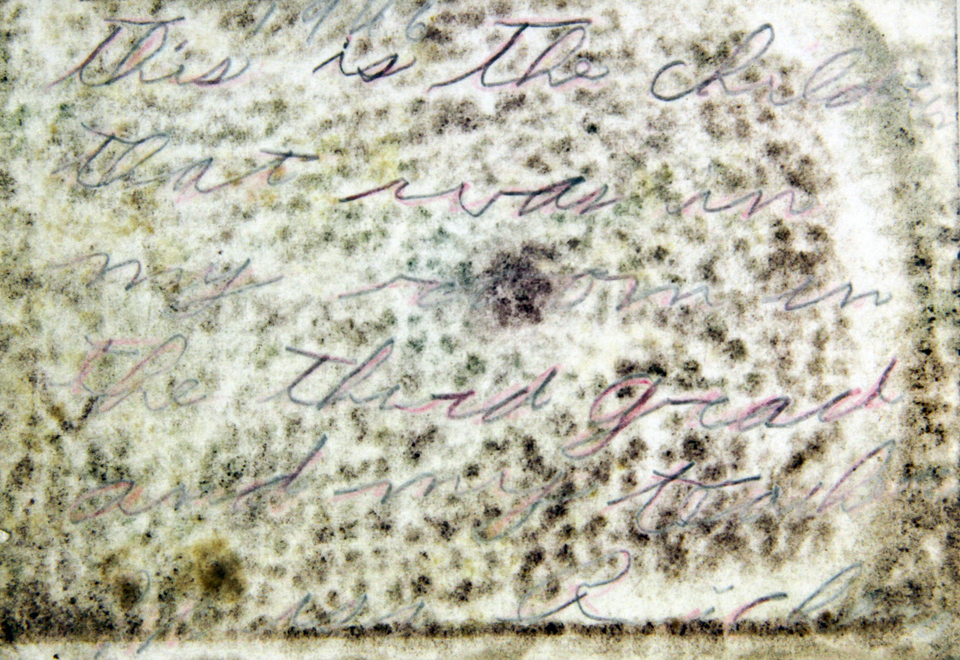 1946
this is the
that was in
my room in
the third grad
and my
Rich